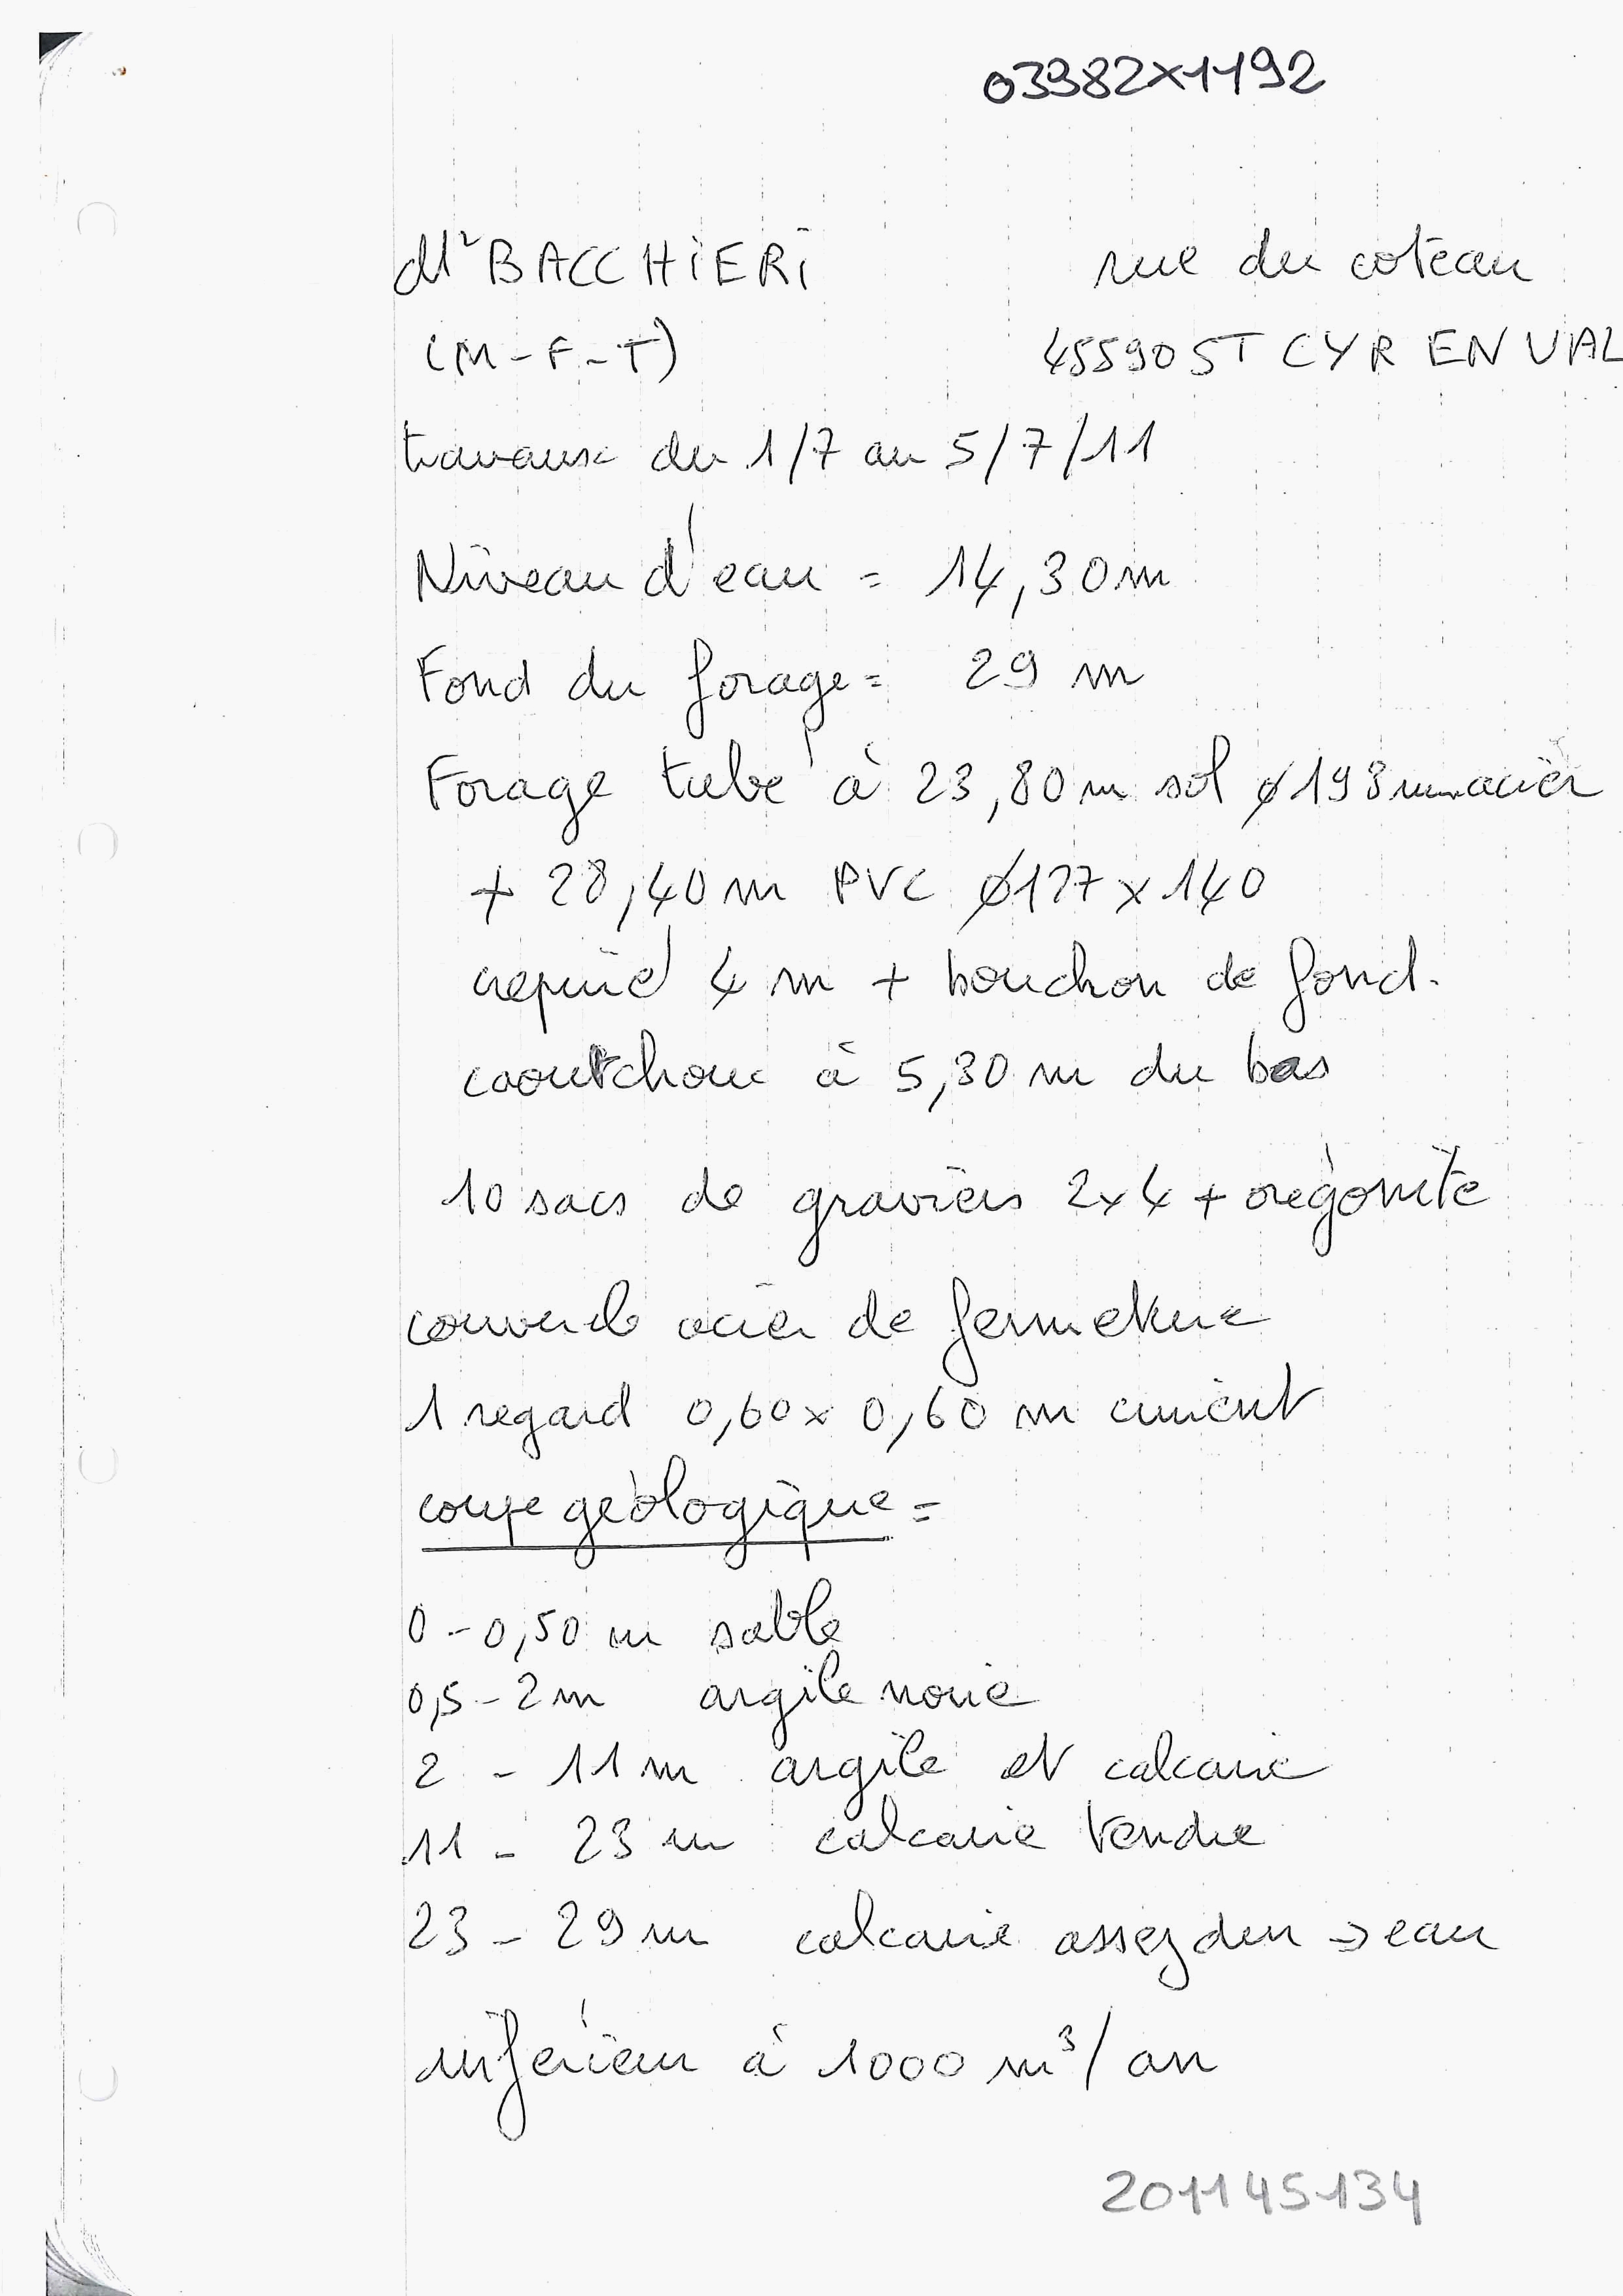 03982X1192
Mr BACCHIERI rue du coteau
(M-F-T) 45590 ST CYR EN VAL
travaux du 1/7 au 5/7/11
Niveau d'eau = 14,30 m
Fond du forage = 29 m
Forage tubé à 23,80 m sol ø 193 mm acier
+ 28,40 m PVC ø 127 x 140
crepiné 4 m + bouchon de fond.
caoutchouc à 5,30 m du bas
10 sacs de graviers 2x4 + oregonite
couvercle acier de fermeture
1 regard 0,60 x 0,60 m ciment
coupe géologique =
0 - 0,50 m sable
0,5 - 2 m argile noire
2 - 11 m argile et calcaire
11 - 23 m calcaire tendre
23 - 29 m calcaire assez dur → eau
inférieur à 1000 m³/an
201145134